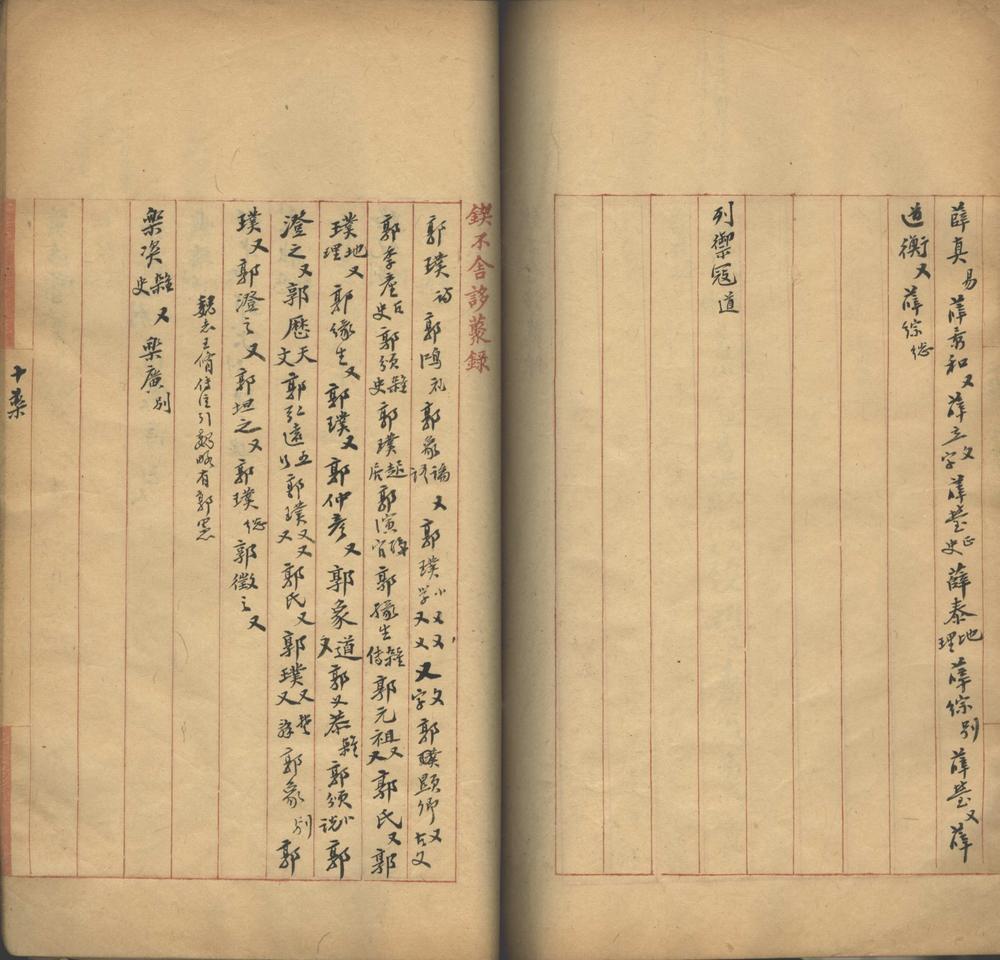 薛真易 薛爲和又 薛立文字 薛瑩正史 薛泰地理 薛綜別 薛瑩又 薛
道衡又 薛綜總
列禦寇道
鍥不舍誃叢錄
郭璞詩 郭鴻礼 郭象論語 又 郭璞小学又又又又文字 郭璞顯卿又
郭季產古史 郭頒雜史 郭璞起居 郭演職官 郭緣生雜傳 郭元祖又又 郭氏又 郭
璞地理又 郭緣生又 郭璞又 郭仲彥又 郭象道又 郭又恭雜 郭頒小說 郭
澄之又 郭歷天文 郭弘遠五行 郭璞又又又 郭氏又 郭璞又又楚辭 郭象別 郭
璞又 郭澄之又 郭坦之又 郭璞總 郭徵之又
魏志王脩傳注引魏略有郭憲
樂資雜史又 樂廣別
十藥